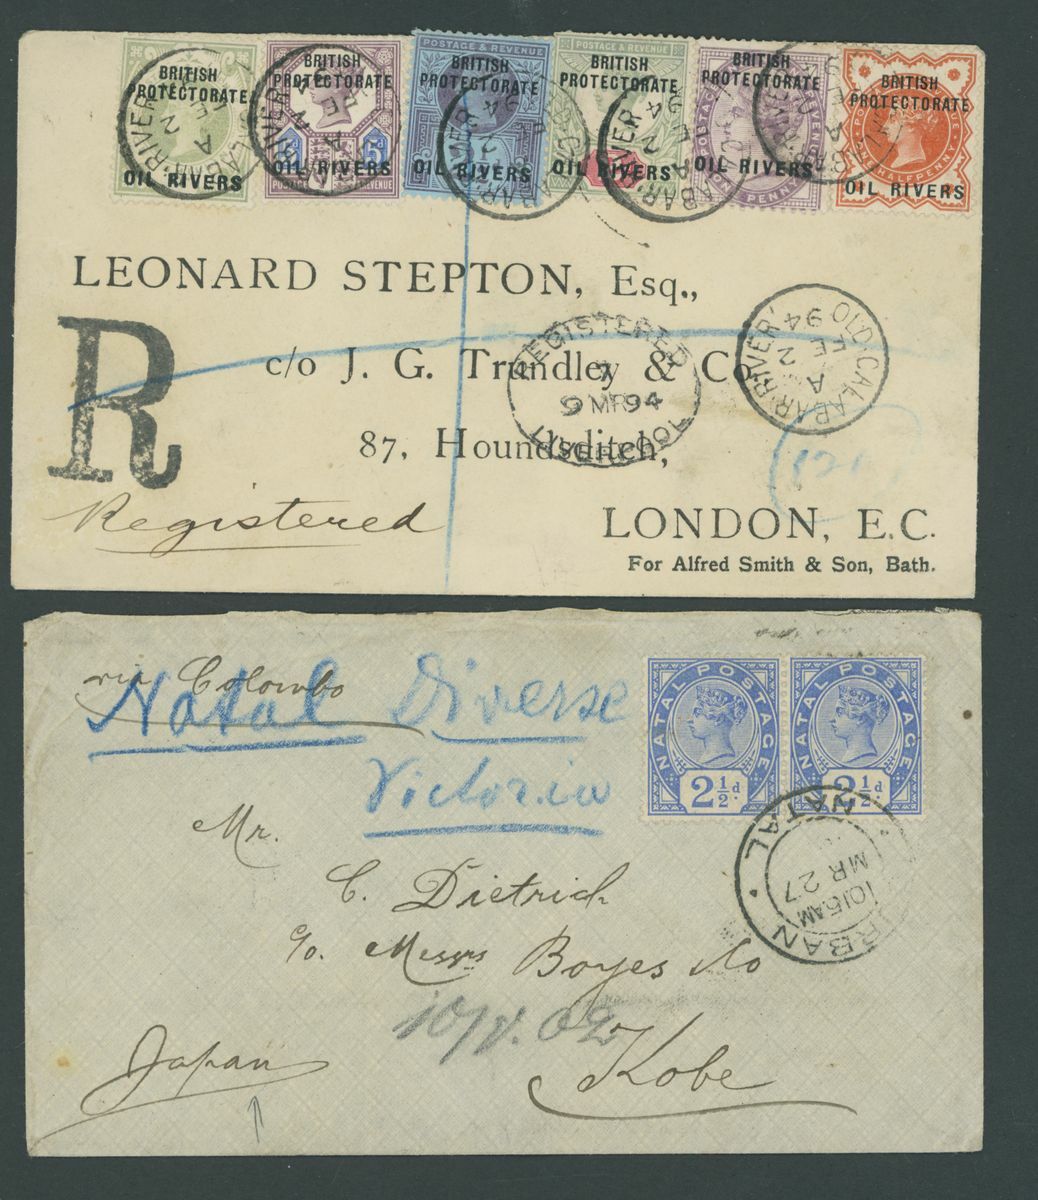 BRITISH PROTECTORATE OIL RIVERS
BRITISH PROTECTORATE OIL RIVERS
POSTAGE REVENUE
5d
POSTAGE & REVENUE
BRITISH PROTECTORATE OIL RIVERS
POSTAGE & REVENUE
BRITISH PROTECTORATE OIL RIVERS
BRITISH PROTECTORATE OIL RIVERS
POSTAGE
ONE PENNY
BRITISH PROTECTORATE OIL RIVERS
HALFPENNY
LEONARD STEPTON, Esq.,
R
c/o J. G. Trundley & Co.
87, Houndsditch,
LONDON, E.C.
For Alfred Smith & Son, Bath.
Registered
REGISTERED
7
9 MR 94
LIVERPOOL
OLD CALABAR RIVER
A
FE 2
94
via Colombo
Natal Diverse
Victoria
NATAL POSTAGE
2½d
NATAL POSTAGE
2½d
NATAL
1015AM
MR 27
Mr.
C. Dietrich
c/o. Messrs Boyes & Co
Kobe
Japan